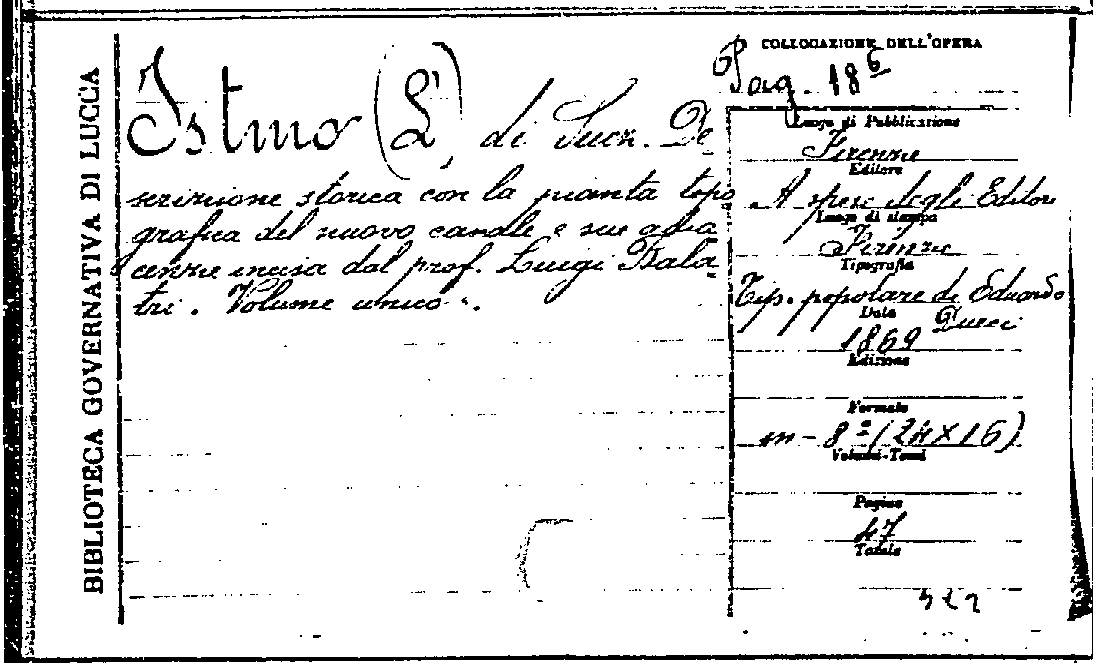 BIBLIOTECA GOVERNATIVA DI LUCCA
Istmo (L') di Suez. De
scrizione storica con la pianta topo
grafica del nuovo canale e sue adia
cenze incisa dal prof. Luigi Bala
tri. Volume unico.
COLLOCAZIONE DELL'OPERA
Pag. 18
Luogo di Pubblicazione
Firenze
Editore
A spese degli Editori
Luogo di stampa
Firenze
Tipografia
Tip. popolare di Eduardo
Ducci
Data
1869
Edizione
Formato
in-8º (24×16)
Volumi-Tomi
Pagine
47
Tavole